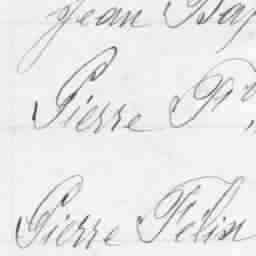 Jean Bap
Pierre Fr
Pierre Félix